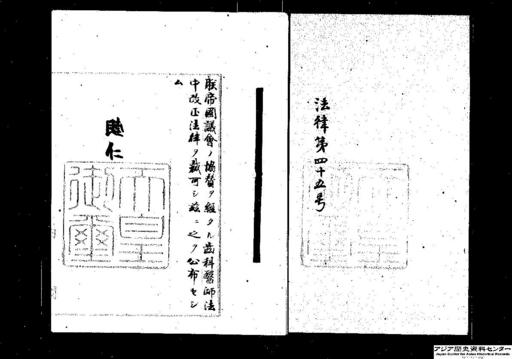 法律第四十五号
朕帝國議會ノ協賛ヲ經タル齒科醫師法
中改正法律ヲ裁可シ茲ニ之ヲ公布セシ
ム
睦仁
天皇
御璽
アジア歴史資料センター
Japan Center for Asian Historical Records